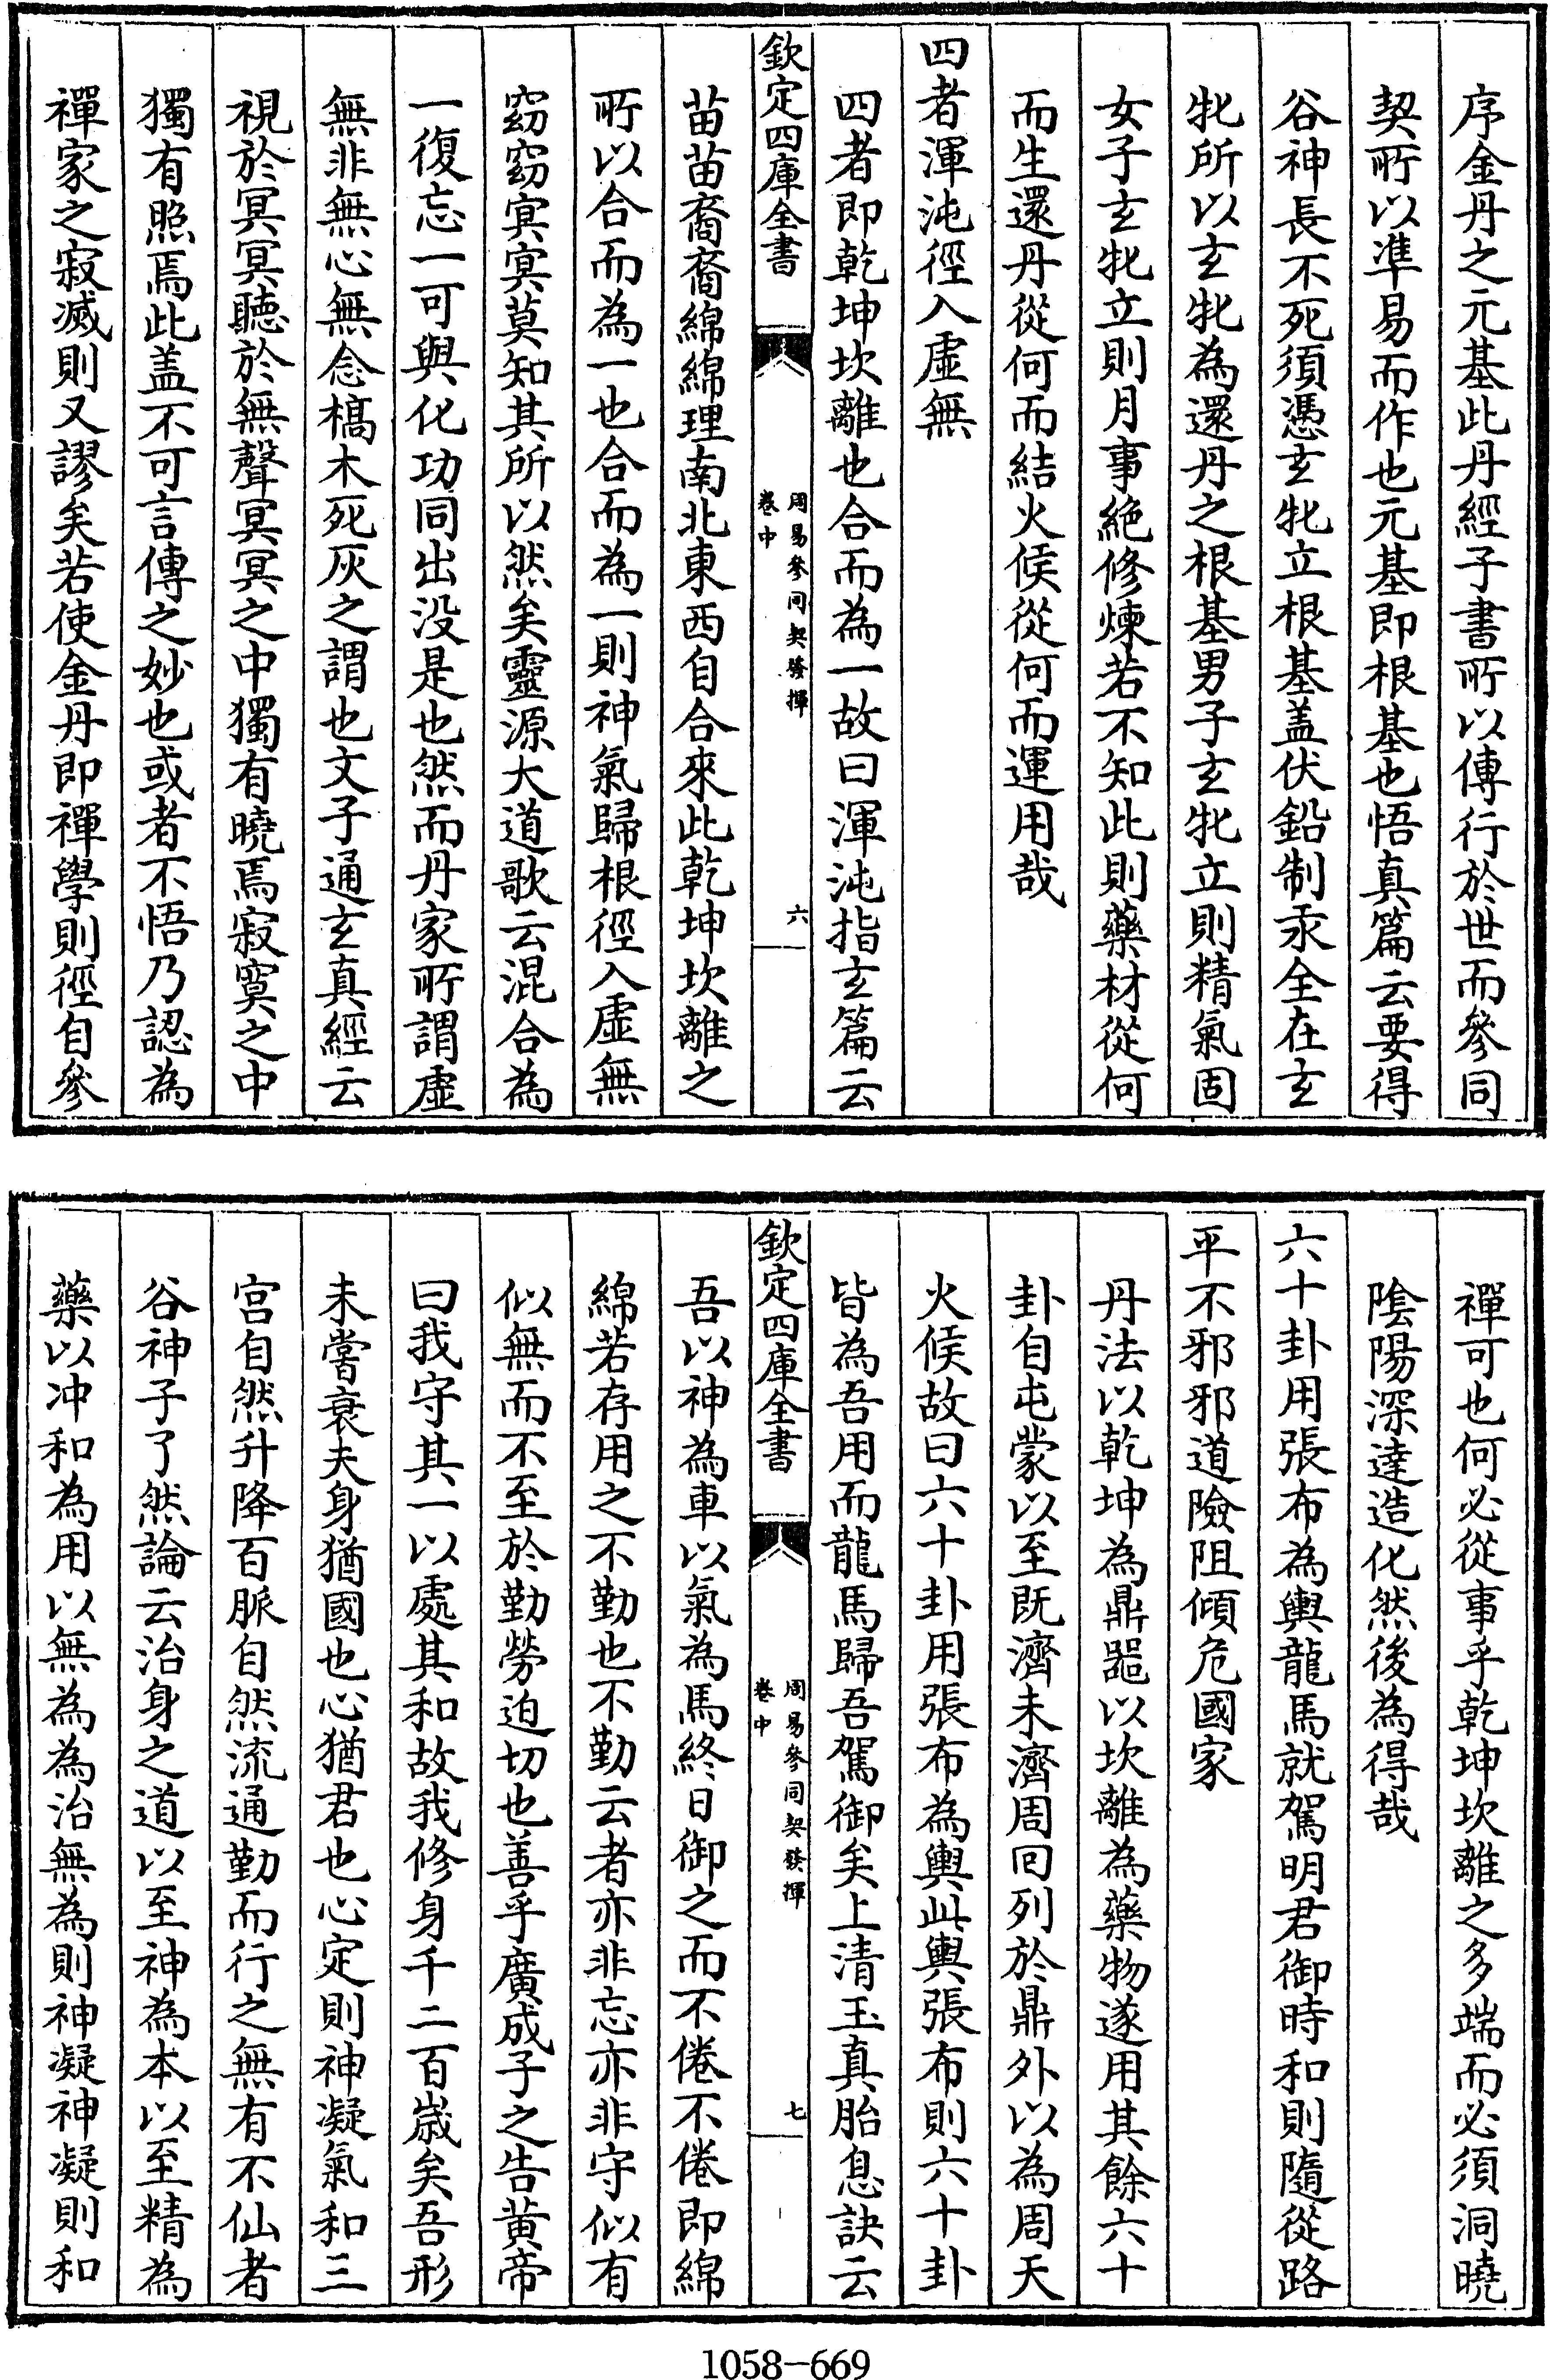 序金丹之元基此丹經子書所以傳行於世而參同
契所以準易而作也元基即根基也悟真篇云要得
谷神長不死須憑玄牝立根基盖伏鉛制汞全在玄
牝所以玄牝為還丹之根基男子玄牝立則精氣固
女子玄牝立則月事絶修煉若不知此則藥材從何
而生還丹從何而結火候從何而運用哉
四者渾沌徑入虛無
四者即乾坤坎離也合而為一故曰渾沌指玄篇云
欽定四庫全書
周易參同契發揮
卷中
六
苗苗裔裔綿綿理南北東西自合來此乾坤坎離之
所以合而為一也合而為一則神氣歸根徑入虛無
窈窈冥冥莫知其所以然矣靈源大道歌云混合為
一復忘一可與化功同出没是也然而丹家所謂虛
無非無心無念槁木死灰之謂也文子通玄真經云
視於冥冥聽於無聲冥冥之中獨有曉焉寂寞之中
獨有照焉此盖不可言傳之妙也或者不悟乃認為
禪家之寂滅則又謬矣若使金丹即禪學則徑自參
禪可也何必從事乎乾坤坎離之多端而必須洞曉
陰陽深達造化然後為得哉
六十卦用張布為輿龍馬就駕明君御時和則隨從路
平不邪邪道險阻傾危國家
丹法以乾坤為鼎器以坎離為藥物遂用其餘六十
卦自屯蒙以至既濟未濟周回列於鼎外以為周天
火候故曰六十卦用張布為輿此輿張布則六十卦
皆為吾用而龍馬歸吾駕御矣上清玉真胎息訣云
欽定四庫全書
周易參同契發揮
卷中
七
吾以神為車以氣為馬終日御之而不倦不倦即綿
綿若存用之不勤也不勤云者亦非忘亦非守似有
似無而不至於勤勞迫切也善乎廣成子之告黄帝
曰我守其一以處其和故我修身千二百嵗矣吾形
未嘗衰夫身猶國也心猶君也心定則神凝氣和三
宫自然升降百脈自然流通勤而行之無有不仙者
谷神子了然論云治身之道以至神為本以至精為
藥以冲和為用以無為為治無為則神凝神凝則和
1058-669